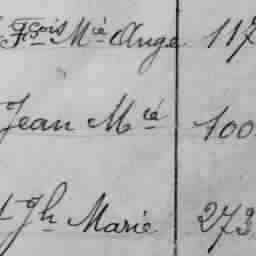 Fçois Mie Ange 117
Jean Mie 100
Jh Marie 273